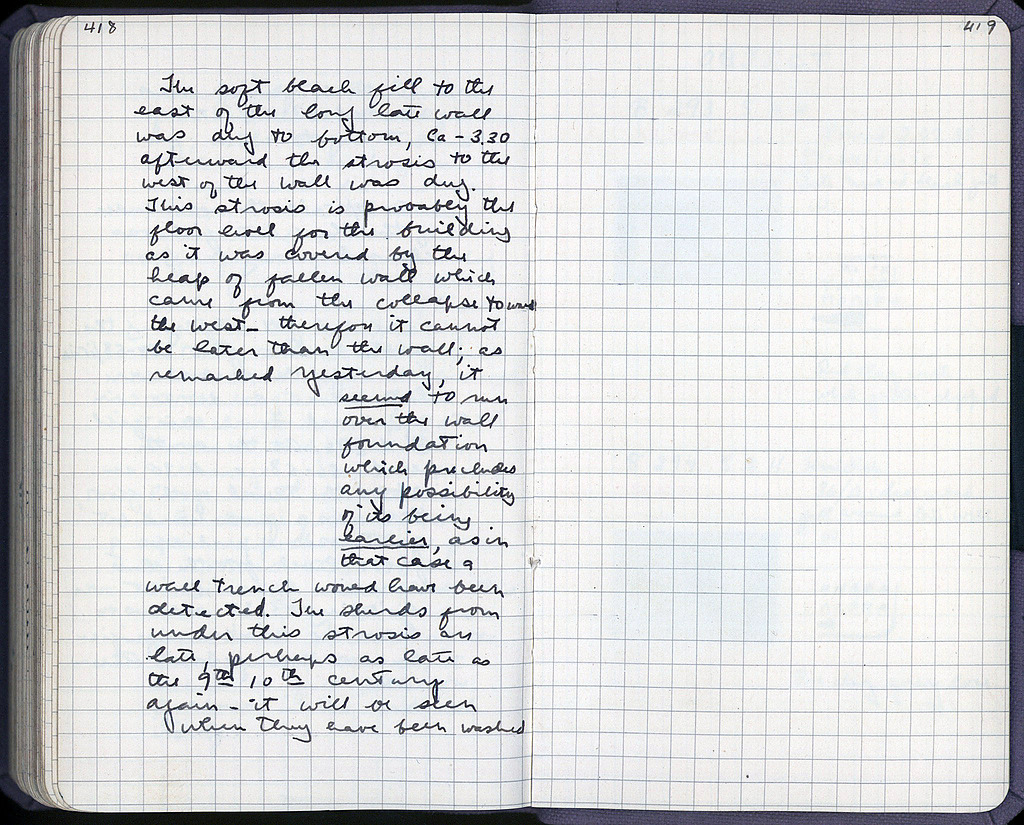 418
The soft black fill to the
east of the long late wall
was dug to bottom, Ca - 3.30
afterward the strosis to the
west of the wall was dug.
This strosis is probably the
floor level for the building
as it was covered by the
heap of fallen wall which
came from the collapse toward
the west - therefore it cannot
be later than the wall; as
remarked yesterday, it
seemed to run
over the wall
foundation
which precludes
any possibility
of its being
earlier, as in
that case a
wall trench would have been
detected. The sherds from
under this strosis are
late, perhaps as late as
the 9th 10th century
again - it will be seen
when they have been washed
419